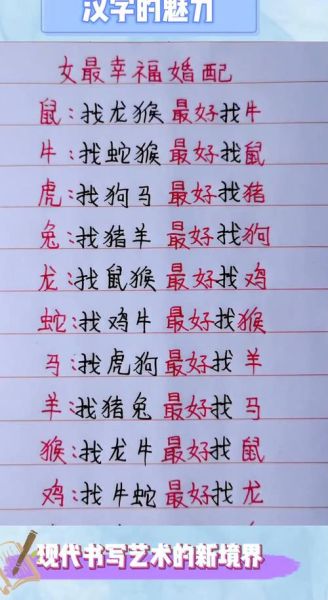 汉字的魅力
女最幸福婚配
鼠:找龙猴最好找牛
牛:找蛇猴最好找鼠
虎:找狗马最好找猪
兔:找猪羊最好找狗
龙:找鼠猴最好找鸡
蛇:找鸡牛最好找猴
马:找虎狗最好找羊
羊:找猪兔最好找马
猴:找龙牛最好找鼠
鸡:找牛蛇最好找龙
现代书写艺术的新境界